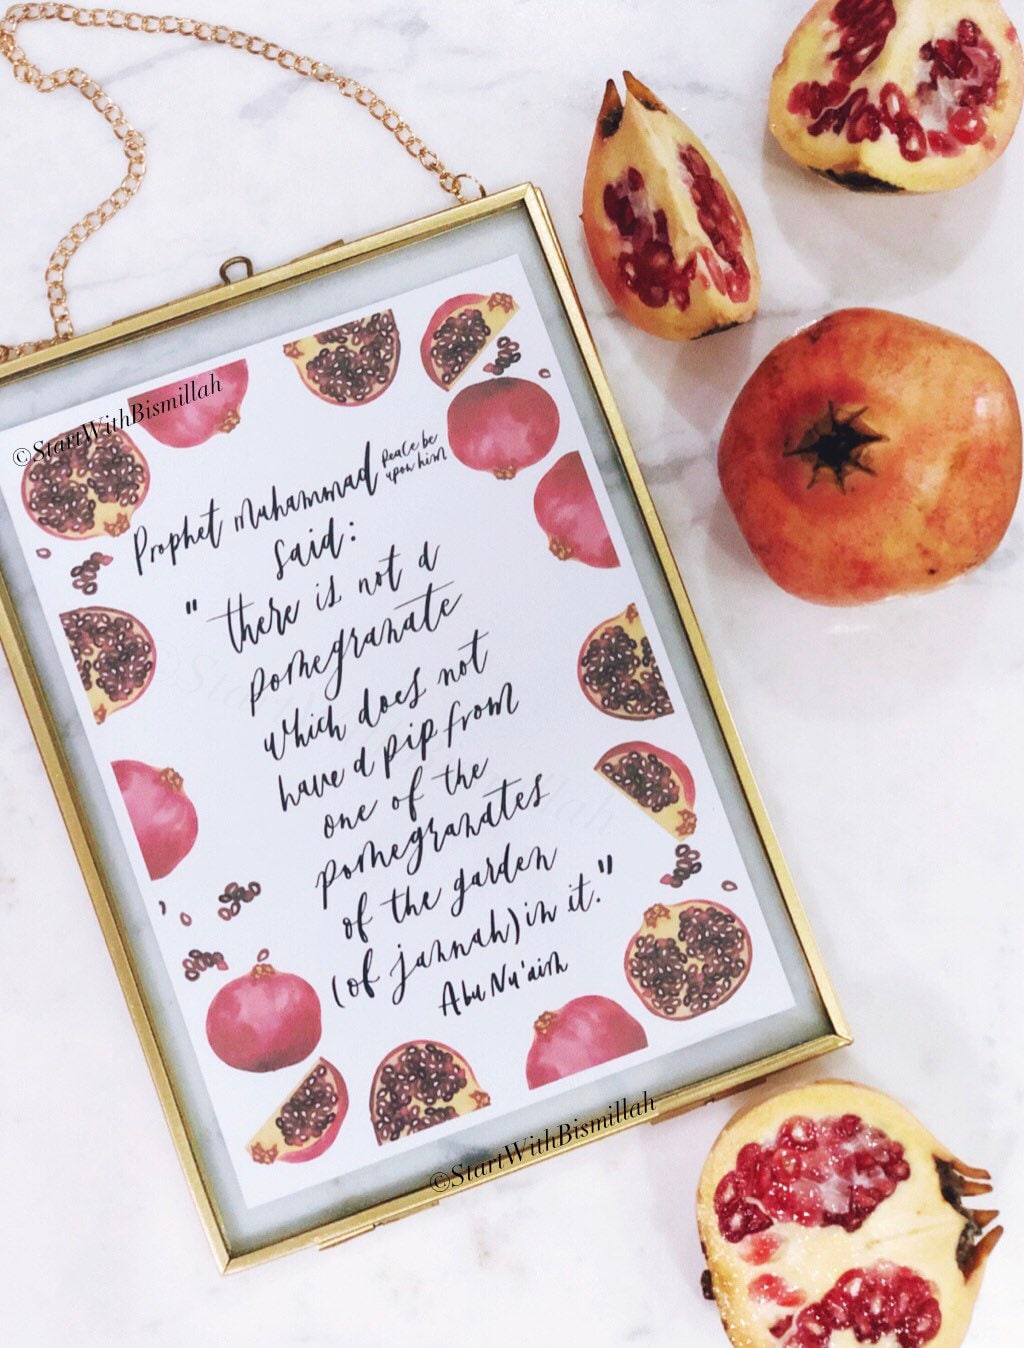 ©StartWithBismillah
Prophet Muhammad peace be upon him
said:
"there is not a
pomegranate
which does not
have a pip from
one of the
pomegranates
of the garden
(of jannah) in it."
Abu Nu'aim
©StartWithBismillah